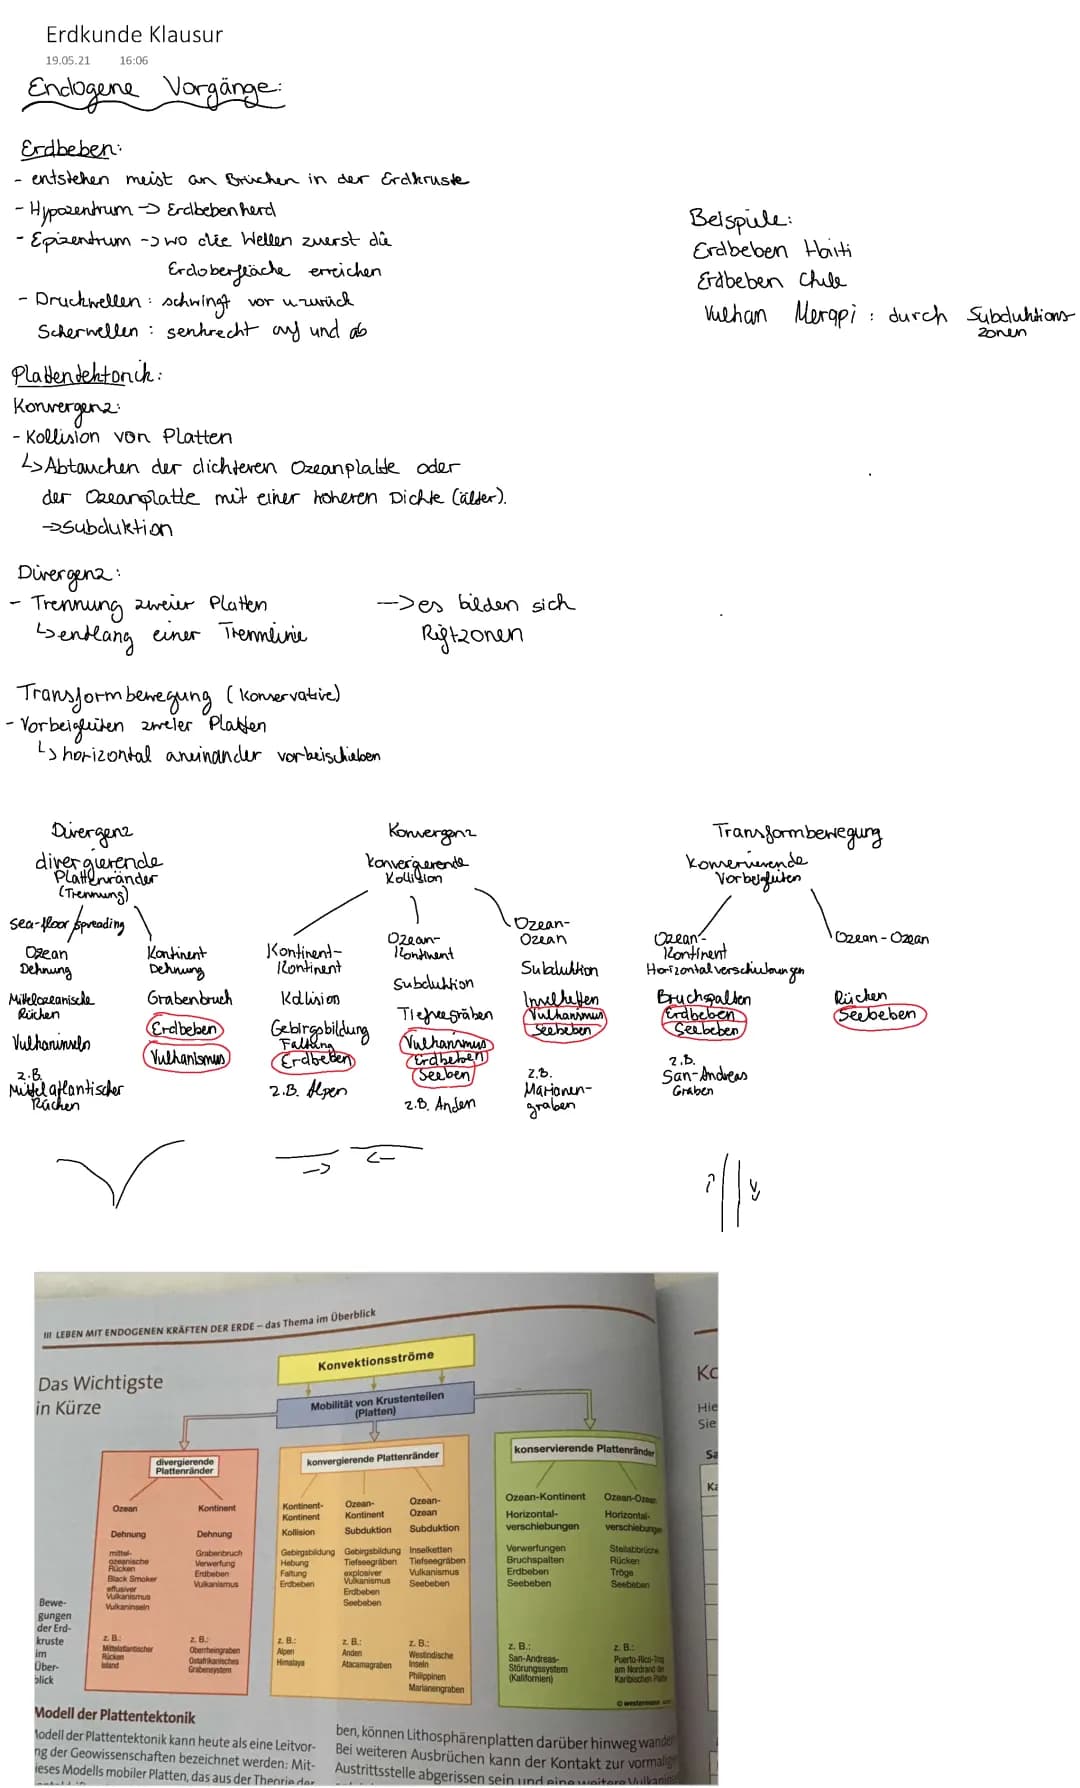 Erdkunde Klausur
19.05.21 16:06
Endogene Vorgänge:
Erdbeben:
- entstehen meist an Brüchen in der Erdkruste
- Hypozentrum -> Erdbebenherd
- Epizentrum -> wo die Wellen zuerst die
Erdoberfläche erreichen
- Druckwellen : schwingt vor u zurück
Scherwellen : senkrecht auf und ab
Beispiele:
Erdbeben Haiti
Erdbeben Chile
Vulkan Merapi : durch Subduktions-
zonen
Plattentektonik:
Konvergenz:
- Kollision von Platten
↳ Abtauchen der dichteren Ozeanplatte oder
der Ozeanplatte mit einer höheren Dichte (älter).
-> Subduktion
Divergenz:
- Trennung zweier Platten
↳ entlang einer Trennlinie
--> es bilden sich
Riftzonen
Transformbewegung (Konservative)
- Vorbeigleiten zweier Platten
↳ horizontal aneinander vorbeischieben
Divergenz
divergierende
Plattenränder
(Trennung)
sea-floor spreading
Ozean
Dehnung
Mittelozeanische
Rücken
Vulkaninseln
z.B.
Mittelatlantischer
Rücken
Kontinent
Dehnung
Grabenbruch
Erdbeben
Vulkanismus
Konvergenz
konvergierende
Kollision
Kontinent-
Kontinent
Kollision
Gebirgsbildung
Faltung
Erdbeben
z.B. Alpen
Ozean-
Kontinent
Subduktion
Tiefseegräben
Vulkanismus
Erdbeben
Seeben
z.B. Anden
Ozean-
Ozean
Subduktion
Inselketten
Vulkanismus
Seebeben
z.B.
Marianen-
graben
Transformbewegung
konservierende
Vorbeigleiten
Ozean-
Kontinent
Horizontalverschiebungen
Bruchspalten
Erdbeben
Seebeben
z.B.
San-Andreas
Graben
Ozean - Ozean
Rücken
Seebeben
III LEBEN MIT ENDOGENEN KRÄFTEN DER ERDE – das Thema im Überblick
Das Wichtigste
in Kürze
Konvektionsströme
Mobilität von Krustenteilen
(Platten)
divergierende
Plattenränder
Ozean
Dehnung
mittel-
ozeanische
Rücken
Black Smoker
effusiver
Vulkanismus
Vulkaninseln
z. B.:
Mittelatlantischer
Rücken
Island
Kontinent
Dehnung
Grabenbruch
Verwerfung
Erdbeben
Vulkanismus
z. B.:
Oberrheingraben
Ostafrikanisches
Grabensystem
konvergierende Plattenränder
Kontinent-
Kontinent
Kollision
Gebirgsbildung
Hebung
Faltung
Erdbeben
z. B.:
Alpen
Himalaya
Ozean-
Kontinent
Subduktion
Gebirgsbildung
Tiefseegräben
explosiver
Vulkanismus
Erdbeben
Seebeben
z. B.:
Anden
Atacamagraben
Ozean-
Ozean
Subduktion
Inselketten
Tiefseegräben
Vulkanismus
Seebeben
z. B.:
Westindische
Inseln
Philippinen
Marianengraben
konservierende Plattenränder
Ozean-Kontinent
Horizontal-
verschiebungen
Verwerfungen
Bruchspalten
Erdbeben
Seebeben
z. B.:
San-Andreas-
Störungssystem
(Kalifornien)
Ozean-Ozean
Horizontal-
verschiebunge
Steilabbrüche
Rücken
Tröge
Seebeben
z. B.:
Puerto-Rico-Trog
am Nordrand der
Karibischen Platte
© westermann
Bewe-
gungen
der Erd-
kruste
im
Über-
blick
Ko
Hie
Sie
Sa
Ka
Modell der Plattentektonik
Modell der Plattentektonik kann heute als eine Leitvor-
ng der Geowissenschaften bezeichnet werden: Mit-
ieses Modells mobiler Platten, das aus der Theorie der
ben, können Lithosphärenplatten darüber hinweg wande
Bei weiteren Ausbrüchen kann der Kontakt zur vormalig
Austrittsstelle abgerissen sein und eine weitere Vulkanin